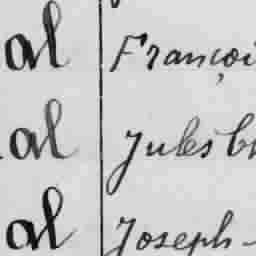 al Françoi
al Jules
al Joseph-